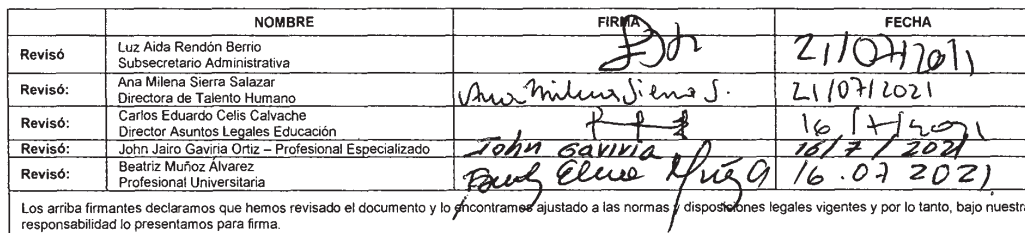 NOMBRE FIRMA FECHA
Revisó Luz Aida Rendón Berrio
Subsecretario Administrativa 21/07/2021
Revisó: Ana Milena Sierra Salazar
Directora de Talento Humano Ana Milena Sierra S. 21/07/2021
Revisó: Carlos Eduardo Celis Calvache
Director Asuntos Legales Educación 16/7/2021
Revisó: John Jairo Gaviria Ortiz – Profesional Especializado John Gaviria 16/7/2021
Revisó: Beatriz Muñoz Álvarez
Profesional Universitaria 16.07 2021
Los arriba firmantes declaramos que hemos revisado el documento y lo encontramos ajustado a las normas y disposiciones legales vigentes y por lo tanto, bajo nuestra
responsabilidad lo presentamos para firma.